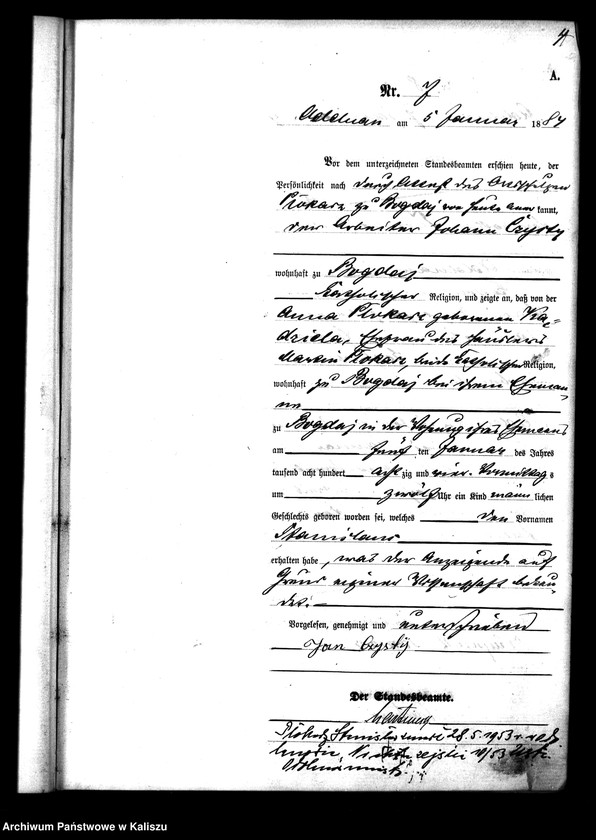 4
A.
Nr. 7
Adelnau am 5 Januar 1884
Vor dem unterzeichneten Standesbeamten erschien heute, der
Persönlichkeit nach durch Attest des Ortsschulzen
Plokarz zu Bogdaj von heute aner kannt,
der Arbeiter Johann Czysty
wohnhaft zu Bogdaj
katholischer Religion, und zeigte an, daß von der
Anna Plokarz geborenen Ka-
dziela, Ehefrau des Häuslers
Martin Plokarz, beide katholischer Religion,
wohnhaft zu Bogdaj bei ihrem Eheman-
ne
zu Bogdaj in der Wohnung ihres Ehemanns
am fünf ten Januar des Jahres
tausend acht hundert acht zig und vier Vormittag s
um zwölf Uhr ein Kind männ lichen
Geschlechts geboren worden sei, welches den Vornamen
Stanislaus
erhalten habe, was der Anzeigende auf
Grund eigener Wissenschaft bekun-
det.
Vorgelesen, genehmigt und unterschrieben
Jan Czysty
Der Standesbeamte.
Hartung
Stanisław 28.5.1953 r.
/53
Archiwum Państwowe w Kaliszu